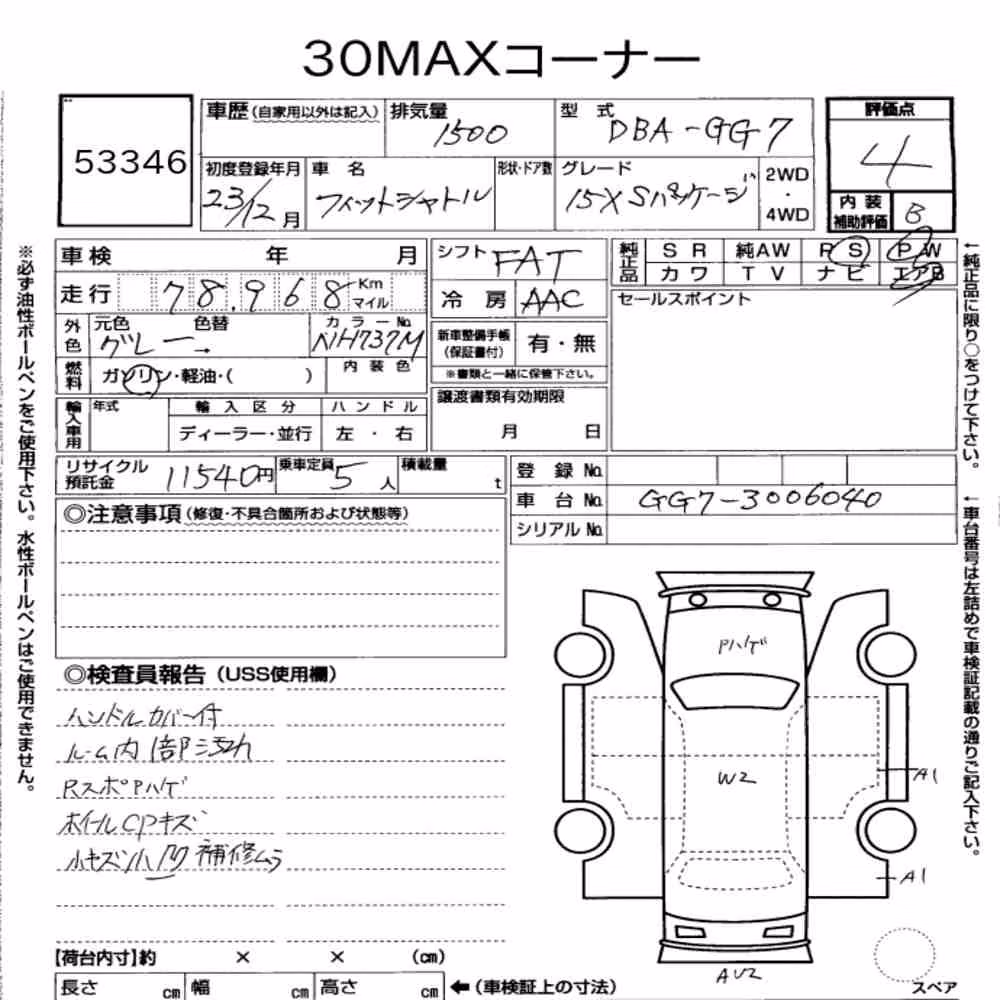 30MAXコーナー
53346
車歴(自家用以外は記入) 排気量 1500 型 式 DBA-GG7
初度登録年月 23/12月 車 名 フィットシャトル 形状・ドア数 グレード 15XSパッケージ 2WD・4WD
評価点
4
内装補助評価 B
車検 年 月
走行 78.968 Km マイル
外色 元色 グレー → 色替 カラーNo. NH737M
燃料 ガソリン・軽油・( ) 内装色
輸入車用 年式 輸入区分 ディーラー・並行 ハンドル 左・右
シフト FAT
冷房 AAC
新車整備手帳(保証書付) 有・無
※書類と一緒に保管下さい。
譲渡書類有効期限
月 日
純正品 SR 純AW PS PW
カワ TV ナビ エアB
セールスポイント
リサイクル預託金 11540円 乗車定員 5人 積載量 t
登録No.
車台No. GG7-3006040
シリアルNo.
◎注意事項(修復・不具合箇所および状態等)
◎検査員報告(USS使用欄)
ハンドルカバー付
ルーム内 1部汚れ
RスポPハゲ
ホイールCPキズ
小キズ小凹 補修ムラ
Pハゲ
W2
A1
A1
AU2
スペア
【荷台内寸】約 × × (cm)
長さ cm 幅 cm 高さ cm ←(車検証上の寸法)
※必ず油性ボールペンをご使用下さい。水性ボールペンはご使用できません。
←純正品に限り○をつけて下さい。
←車台番号は左詰めで車検証記載の通りご記入下さい。